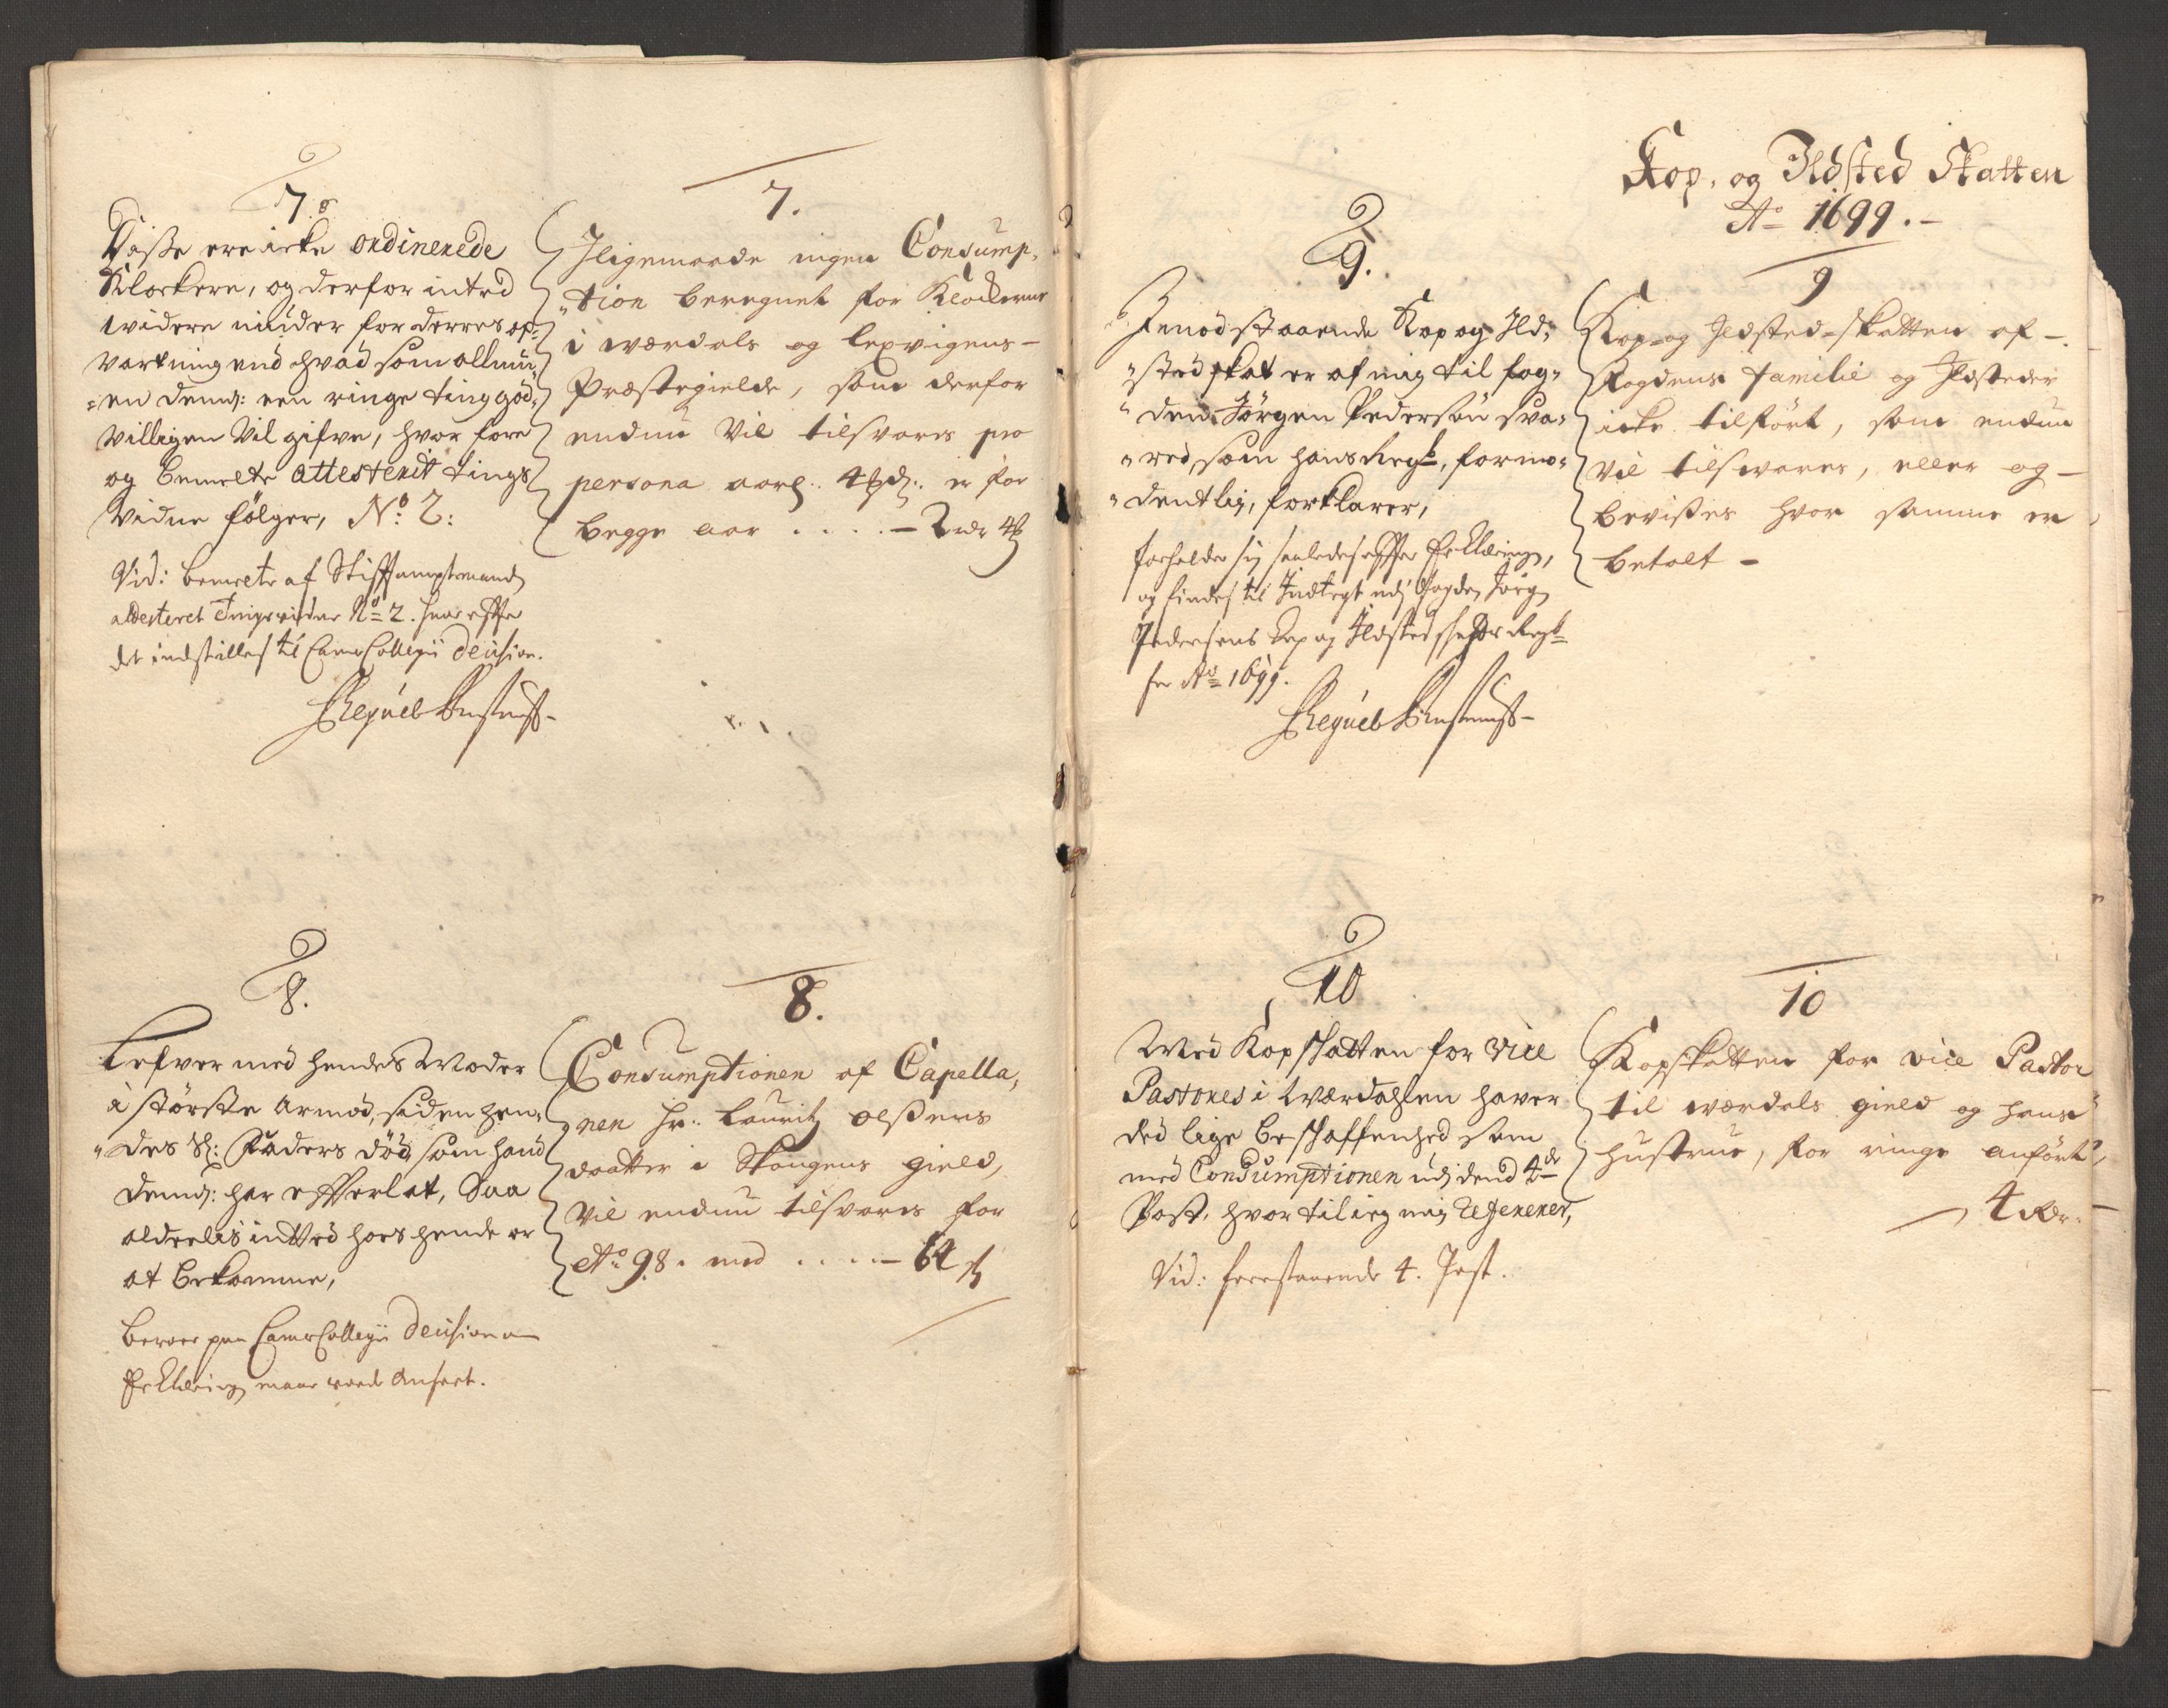 7.
Disse ere icke ordinerede
Klockere, og derfor inted
widere niuder for derres op-
vartning end hvad som allmu-
en dennem: een ringe ting god-
villigen vil gifve, hvor fore
og bemelte attesterit tings
vidne følger, No: 2:
Vid: bemelte af Stifftamptmand
attesteret Tingsvidne No= 2. hvor effter
det indstilles til CamerCollegii decision.
7.
Iligemaade ingen Consump-
tion beregnet for Klockerne
i wærdals og lexvigens
Præstegielde, som derfor
endnu vil tilsvaris pro
persona aarl: er for
begge aar . . . . - 2 rdr
8.
Lefver med hendes Moder
i største Armod, siden hen-
des Sl: Faders død, som hand
dennem: har efterlat, Saa
alderlis intted hoes hende er
at bekomme,
beroer paa CamerCollegii decision om
Erklæring maae vorde Anseet.
8.
Consumptionen af Capella-
nen Hr: Lauritz Olssens
daatter i Skongens gield,
vil endnu tilsvaris for
Ao: 98. med . . . . - 64 s
Kop- og Ildsted Skatten
Ao 1699.-
9.
Imodstaaende Kop og Ild-
sted skat er af mig til fog-
den Jörgen Pedersøn sva-
red, som hans Regsk, formo-
dentlig, forklarer,
forholder sig saaledes effter Erklæring,
og findes til Indtegt udj Fogden Jörgen
Pedersens Kop og Ildsted skatter Regsk
for Ao= 1699.
9
Kop- og Ildsted-skatten af
Fogdens familie og Ildsteder
icke tilført, som endnu
vil tilsvares, eller og
bevisses hvor samme er
betalt -
10
Med Kopskatten for Vice
Pastores i Wærdahlen haver
ded lige beskaffenhed som
med Consumptionen udj dend 4de
Post, hvortil ieg mig refererer,
Vid: forestaaende 4. Post.
10
Kopskatten for vice Pastor
til wærdals gield og hans
hustrue, for ringe anført,
4 rdr.